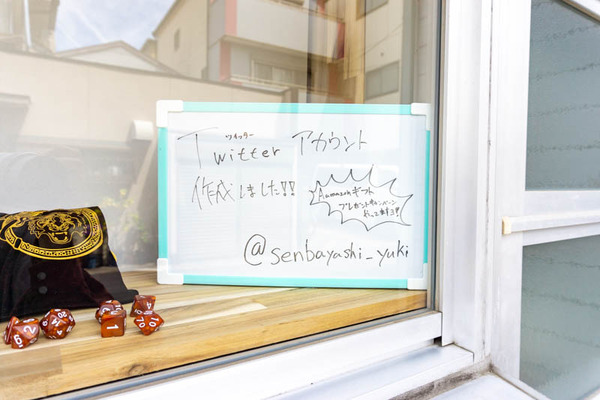 ツイッター
Twitter アカウント
作成しました!!
Amazonギフト
プレゼントキャンペーン
やってます!!
@senbayashi_yuki